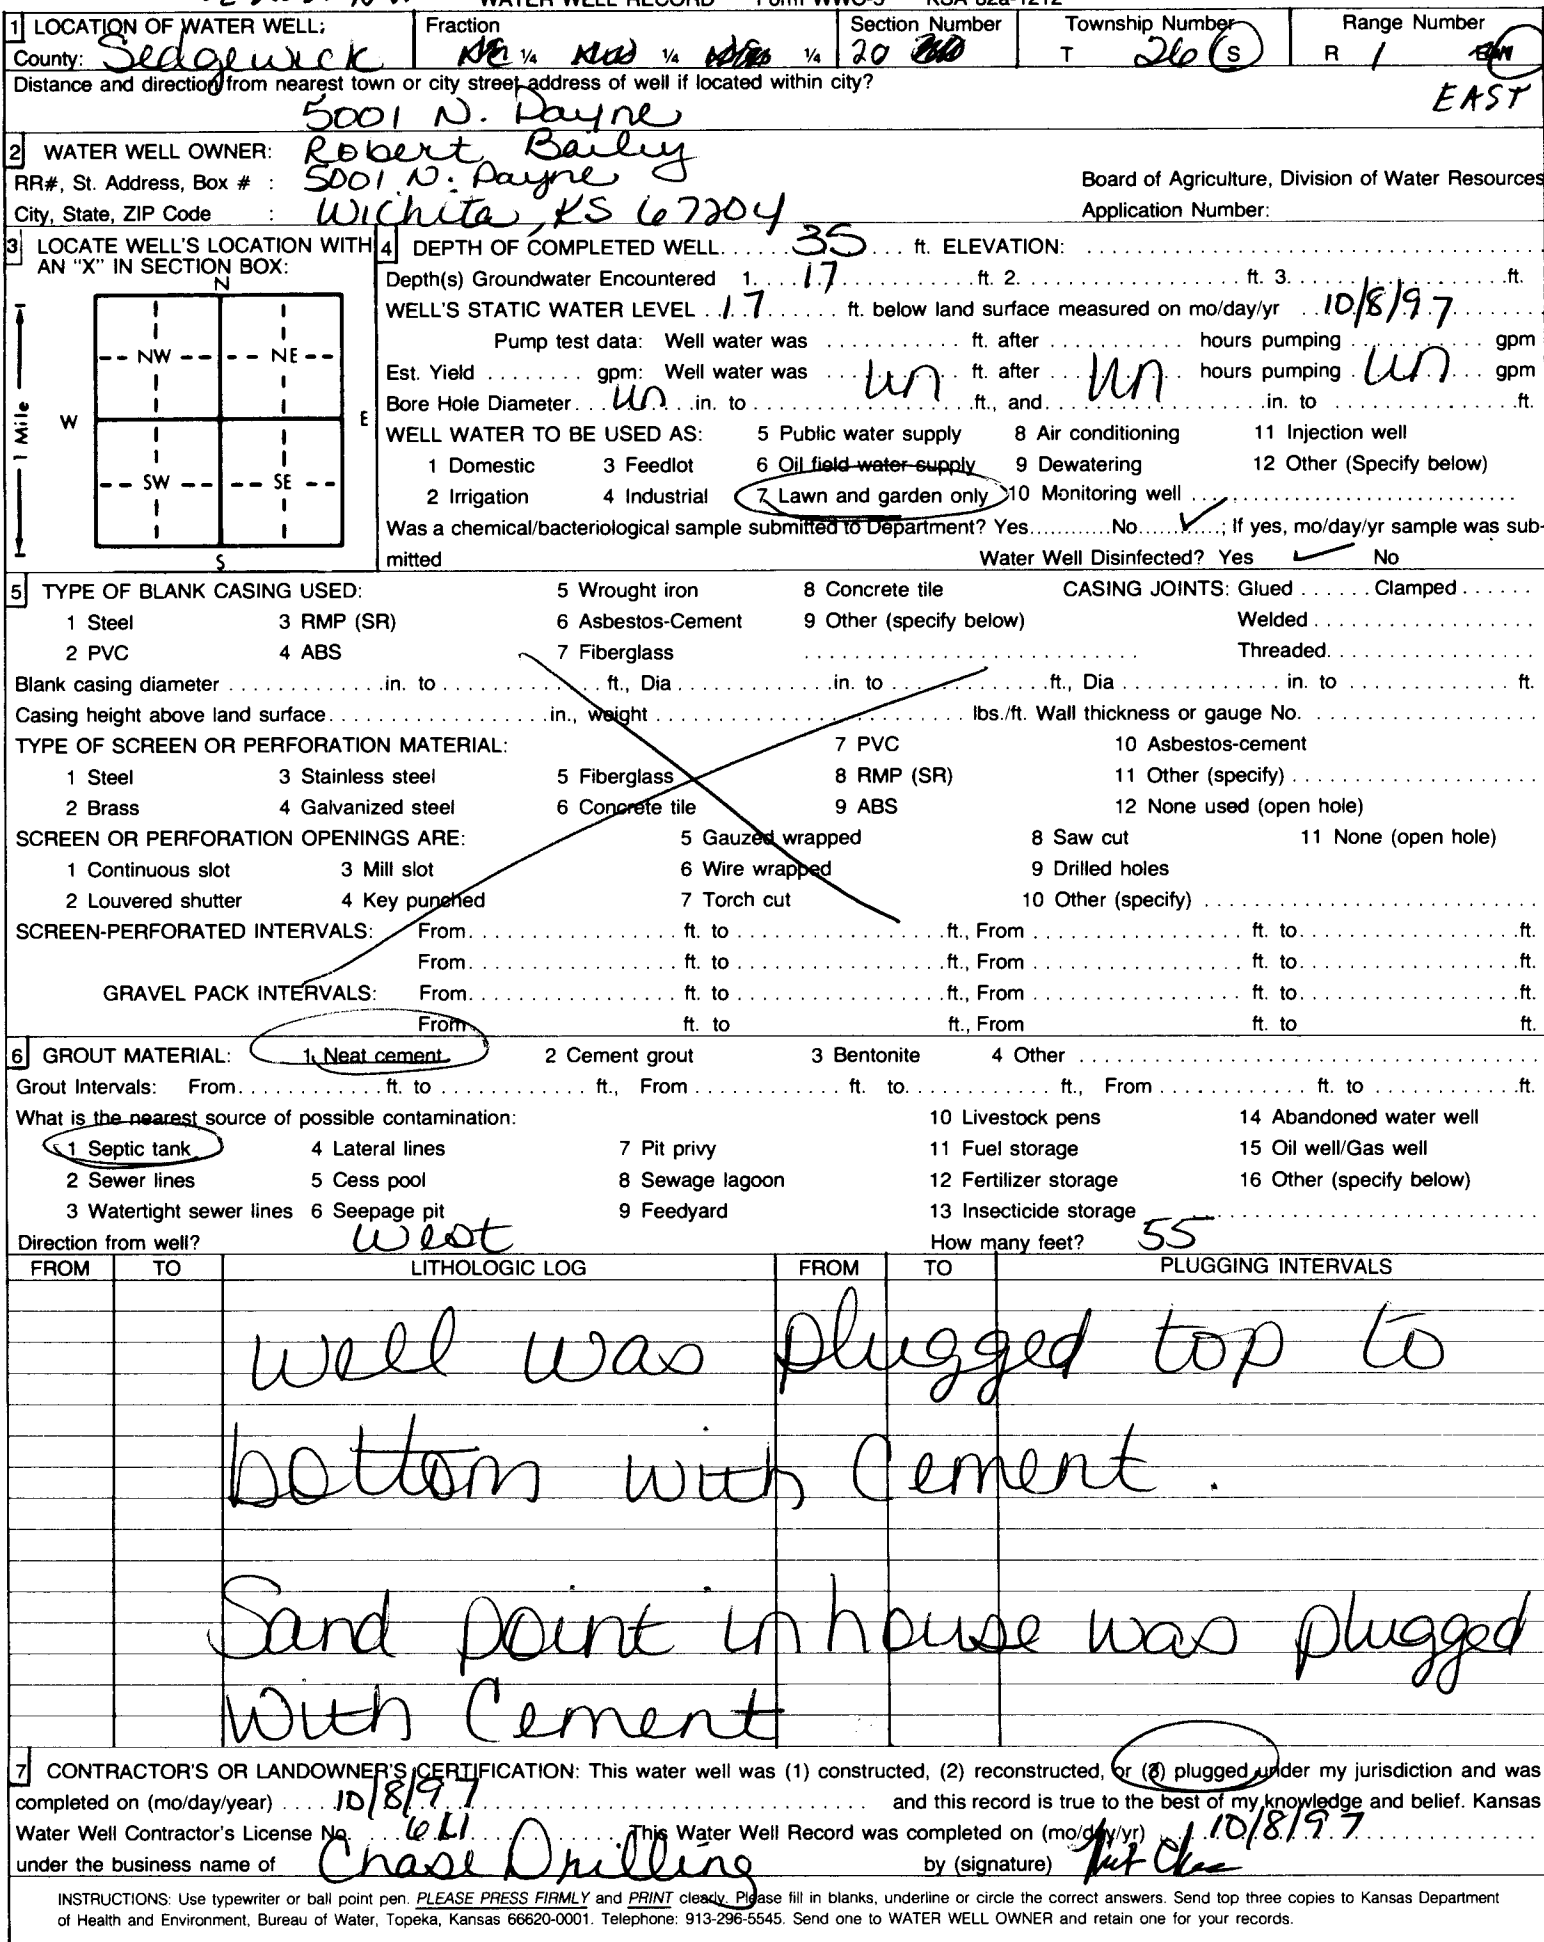 WATER WELL RECORD Form WWC-5 KSA 82a-1212
1 LOCATION OF WATER WELL: Fraction Section Number Township Number Range Number
County: Sedgewick NE ¼ ¼ ¼ 20 T 26 S R 1 E/W
Distance and direction from nearest town or city street address of well if located within city? EAST
5001 N. Payne
2 WATER WELL OWNER: Robert Bailey
RR#, St. Address, Box # : 5001 N. Payne Board of Agriculture, Division of Water Resources
City, State, ZIP Code : Wichita, KS 67204 Application Number:
3 LOCATE WELL'S LOCATION WITH AN "X" IN SECTION BOX:
N
NW NE
W E
SW SE
S
1 Mile
4 DEPTH OF COMPLETED WELL 35 ft. ELEVATION:
Depth(s) Groundwater Encountered 1. 17 ft. 2. ft. 3. ft.
WELL'S STATIC WATER LEVEL 17 ft. below land surface measured on mo/day/yr 10/8/97
Pump test data: Well water was ft. after hours pumping gpm
Est. Yield gpm: Well water was un ft. after un hours pumping un gpm
Bore Hole Diameter un in. to ft., and in. to ft.
WELL WATER TO BE USED AS: 5 Public water supply 8 Air conditioning 11 Injection well
1 Domestic 3 Feedlot 6 Oil field water supply 9 Dewatering 12 Other (Specify below)
2 Irrigation 4 Industrial 7 Lawn and garden only 10 Monitoring well
Was a chemical/bacteriological sample submitted to Department? Yes No ✓; If yes, mo/day/yr sample was sub-
mitted Water Well Disinfected? Yes ✓ No
5 TYPE OF BLANK CASING USED: 5 Wrought iron 8 Concrete tile CASING JOINTS: Glued Clamped
1 Steel 3 RMP (SR) 6 Asbestos-Cement 9 Other (specify below) Welded
2 PVC 4 ABS 7 Fiberglass Threaded
Blank casing diameter in. to ft., Dia in. to ft., Dia in. to ft.
Casing height above land surface in., weight lbs./ft. Wall thickness or gauge No.
TYPE OF SCREEN OR PERFORATION MATERIAL: 7 PVC 10 Asbestos-cement
1 Steel 3 Stainless steel 5 Fiberglass 8 RMP (SR) 11 Other (specify)
2 Brass 4 Galvanized steel 6 Concrete tile 9 ABS 12 None used (open hole)
SCREEN OR PERFORATION OPENINGS ARE: 5 Gauzed wrapped 8 Saw cut 11 None (open hole)
1 Continuous slot 3 Mill slot 6 Wire wrapped 9 Drilled holes
2 Louvered shutter 4 Key punched 7 Torch cut 10 Other (specify)
SCREEN-PERFORATED INTERVALS: From ft. to ft., From ft. to ft.
From ft. to ft., From ft. to ft.
GRAVEL PACK INTERVALS: From ft. to ft., From ft. to ft.
From ft. to ft., From ft. to ft.
6 GROUT MATERIAL: 1 Neat cement 2 Cement grout 3 Bentonite 4 Other
Grout Intervals: From ft. to ft., From ft. to ft., From ft. to ft.
What is the nearest source of possible contamination: 10 Livestock pens 14 Abandoned water well
1 Septic tank 4 Lateral lines 7 Pit privy 11 Fuel storage 15 Oil well/Gas well
2 Sewer lines 5 Cess pool 8 Sewage lagoon 12 Fertilizer storage 16 Other (specify below)
3 Watertight sewer lines 6 Seepage pit 9 Feedyard 13 Insecticide storage
Direction from well? West How many feet? 55
FROM TO LITHOLOGIC LOG FROM TO PLUGGING INTERVALS
well was plugged top to
bottom with Cement.
Sand point in house was plugged
With Cement
7 CONTRACTOR'S OR LANDOWNER'S CERTIFICATION: This water well was (1) constructed, (2) reconstructed, or (3) plugged under my jurisdiction and was
completed on (mo/day/year) 10/8/97 and this record is true to the best of my knowledge and belief. Kansas
Water Well Contractor's License No. This Water Well Record was completed on (mo/day/yr) 10/8/97
under the business name of Chase Drilling by (signature)
INSTRUCTIONS: Use typewriter or ball point pen. PLEASE PRESS FIRMLY and PRINT clearly. Please fill in blanks, underline or circle the correct answers. Send top three copies to Kansas Department
of Health and Environment, Bureau of Water, Topeka, Kansas 66620-0001. Telephone: 913-296-5545. Send one to WATER WELL OWNER and retain one for your records.